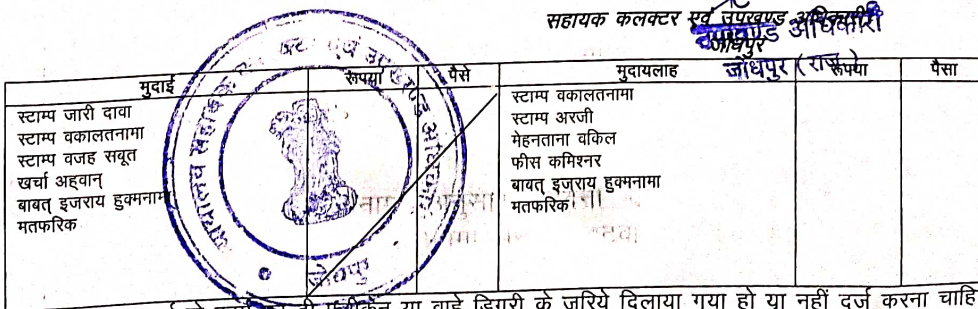 सहायक कलक्टर एवं उपखण्ड अधिकारी
उपखण्ड अधिकारी
जोधपुर
जोधपुर (राज.)
मुदाई रूपया पैसे मुदायलाह रूपया पैसा
स्टाम्प जारी दावा
स्टाम्प वकालतनामा
स्टाम्प वजह सबूत
खर्चा अहवान्
बाबत् इजराय हुक्मनामा
मतफरिक
स्टाम्प वकालतनामा
स्टाम्प अरजी
मेहनताना वकिल
फीस कमिश्नर
बाबत् इज्राय हुक्मनामा
मतफरिक
कार्यालय सहायक एवं उपखण्ड अधिकारी
जोधपुर
या वाहे डिगरी के जरिये दिलाया गया हो या नहीं दर्ज करना चाहि